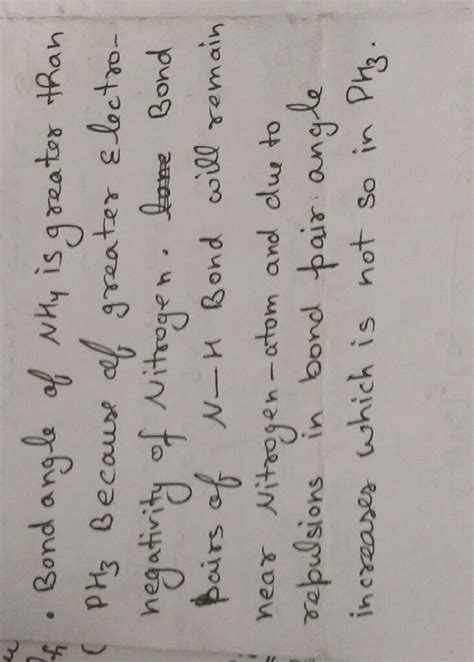 . Bond angle of NH4 is greater than
PH3 Because of greater Electro-
negativity of Nitrogen. Bond
pairs of N-H Bond will remain
near Nitrogen-atom and due to
repulsions in bond pair angle
increases which is not so in PH3.